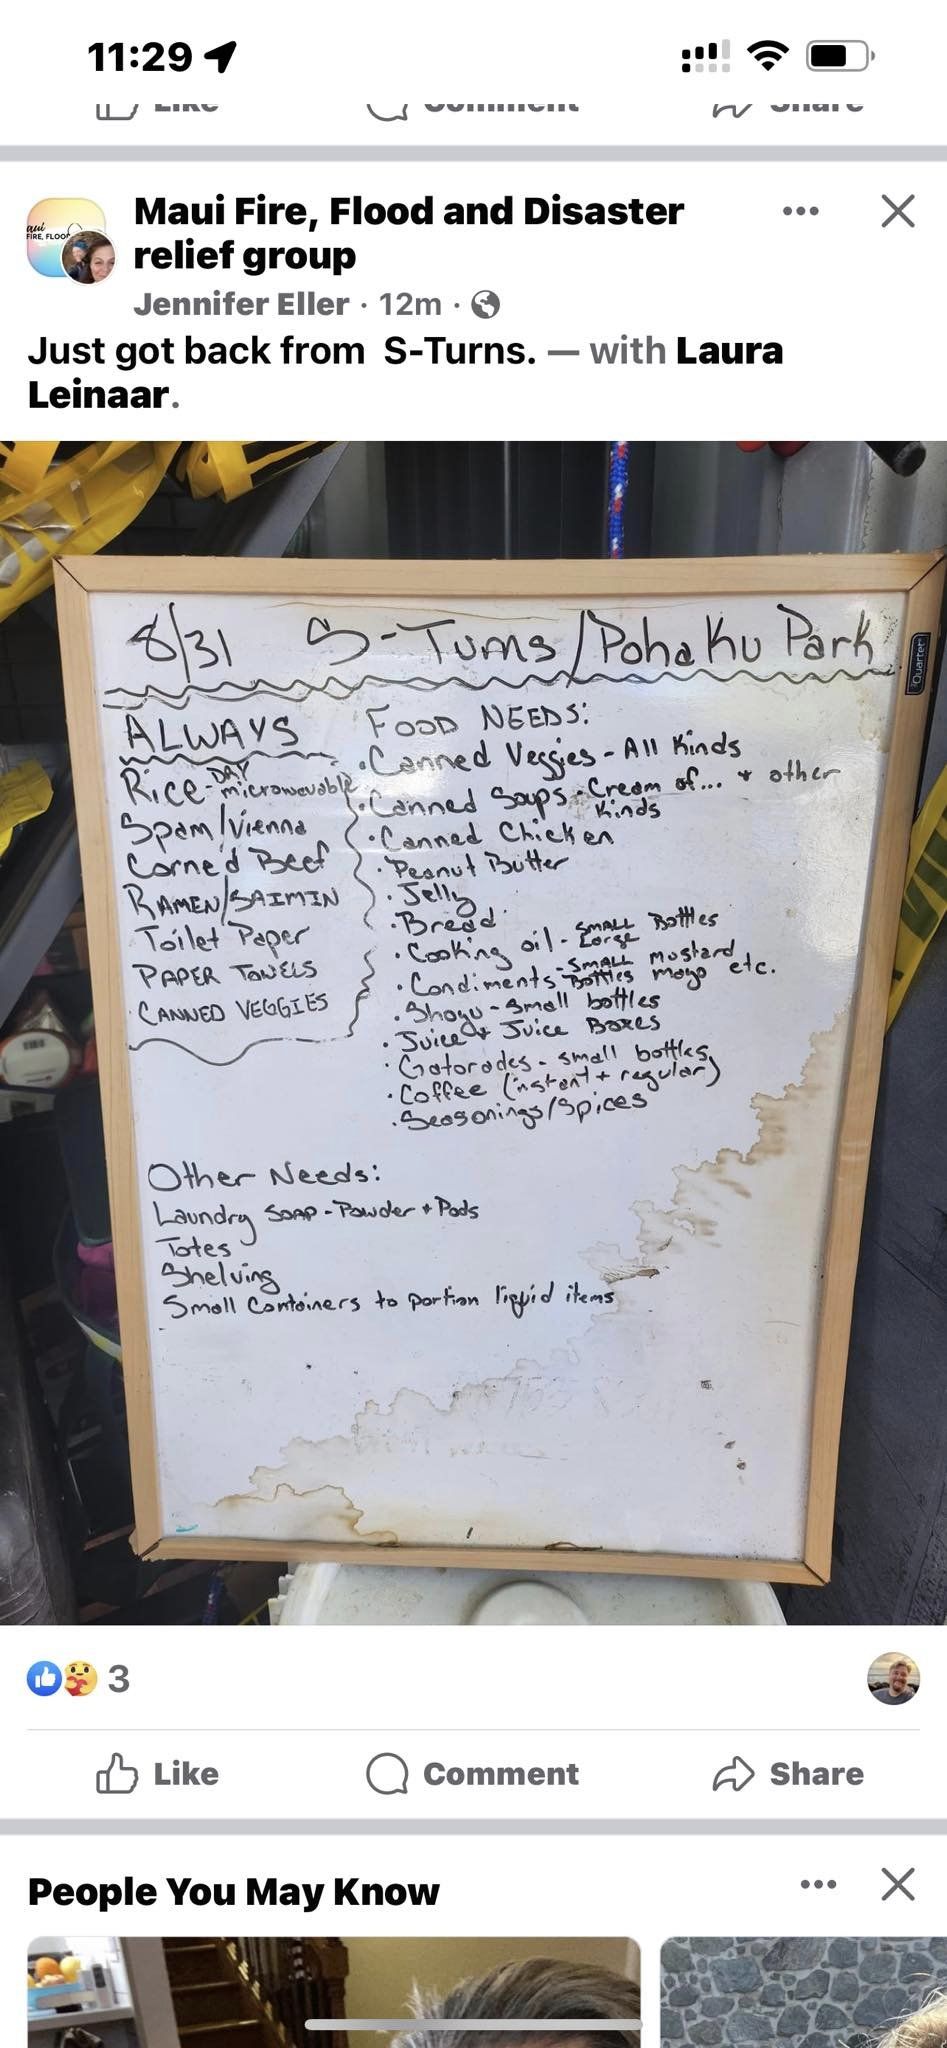 11:29
Like Comment Share
aui
FIRE, FLOOD
Maui Fire, Flood and Disaster
relief group
Jennifer Eller · 12m ·
Just got back from S-Turns. — with Laura
Leinaar.
8/31 S-Turns/Pohaku Park
Quartet
ALWAYS
Rice - DAY
microwavable
Spam/Vienna
Corned Beef
RAMEN/SAIMIN
Toilet Paper
PAPER TOWELS
CANNED VEGGIES
FOOD NEEDS:
• Canned Veggies - All Kinds
• Canned Soups - Cream of... + other
Kinds
• Canned Chicken
• Peanut Butter
• Jelly
• Bread
• Cooking oil - SMALL Bottles
Large
• Condiments - SMALL Mustard
Bottles mayo etc.
• Shoyu - Small bottles
• Juice + Juice Boxes
• Gatorades - small bottles
• Coffee (instant + regular)
• Seasonings/Spices
Other Needs:
Laundry SOAP - Powder + Pods
Totes
Shelving
Small Containers to portion liquid items
3
Like Comment Share
People You May Know